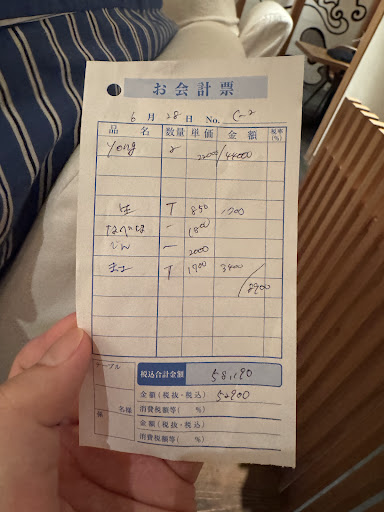 お会計票
6月28日 No. C-2
品名 数量 単価 金額 税率(%)
Yong 2 22000 44000
生 T 850 1700
一 1800
一 2000
T 1700 3400
8900
テーブル
税込合計金額 58,190
金額(税抜・税込) 52900
消費税額等( %)
係 名様
金額(税抜・税込)
消費税額等( %)